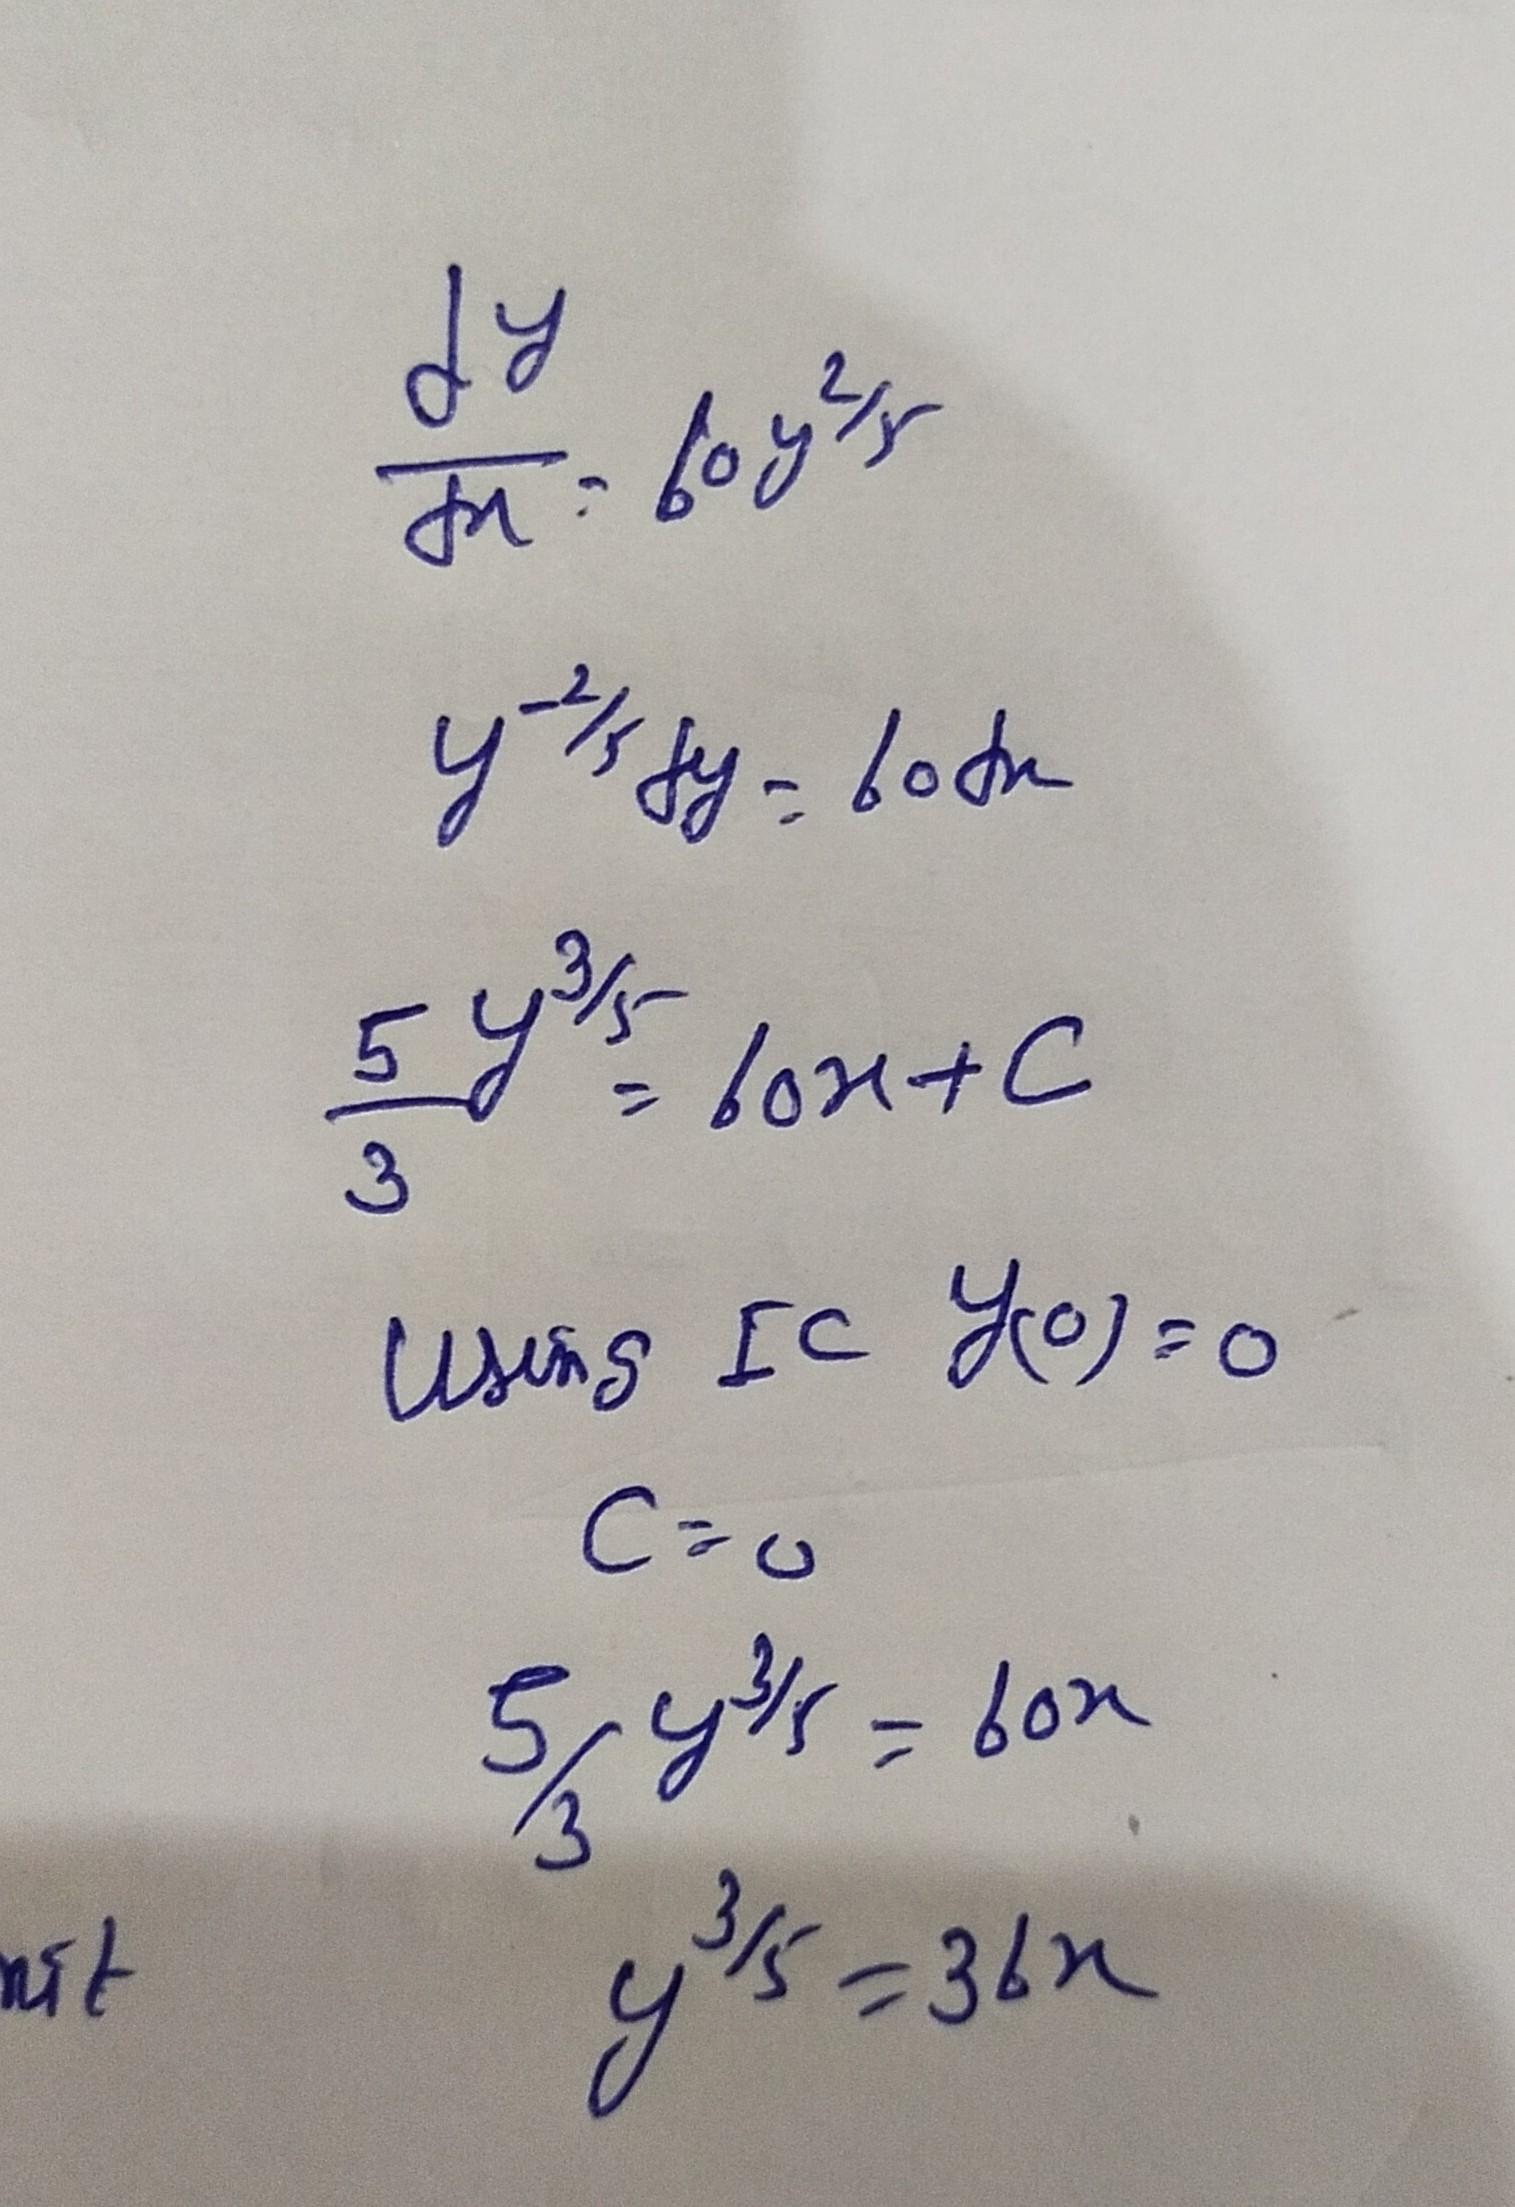 dy/dx = 60y^2/5
y^-2/5 dy = 60dx
5/3 y^3/5 = 60x + C
Using IC y(0) = 0
C = 0
5/3 y^3/5 = 60x
y^3/5 = 36x